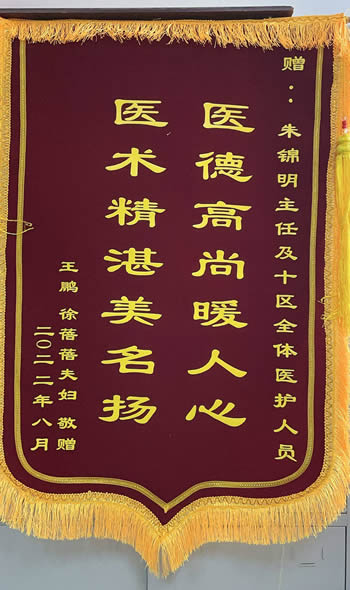 赠：朱锦明主任及十区全体医护人员
医德高尚暖人心
医术精湛美名扬
王鹏 徐蓓蓓夫妇 敬赠
二〇二二年八月